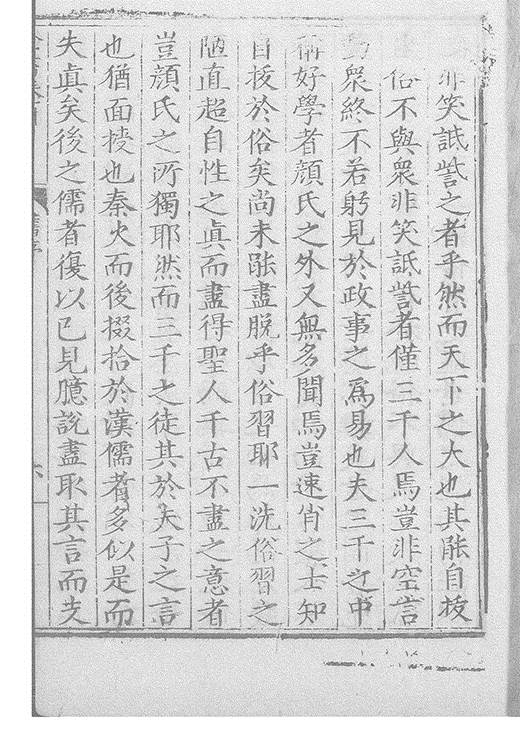 非笑詆訾之者乎然而天下之大也其能自拔
俗不與衆非笑詆訾者僅三千人焉豈非空言
動衆終不若躬見於政事之爲易也夫三千之中
稱好學者顏氏之外又無多聞焉豈速肖之士知
自拔於俗矣尚未能盡脫乎俗習耶一洗俗習之
陋直超自性之真而盡得聖人千古不盡之意者
豈顏氏之所獨耶然而三千之徒其於夫子之言
也猶面授也秦火而後掇拾於漢儒者多似是而
失真矣後之儒者復以己見臆說盡取其言而支